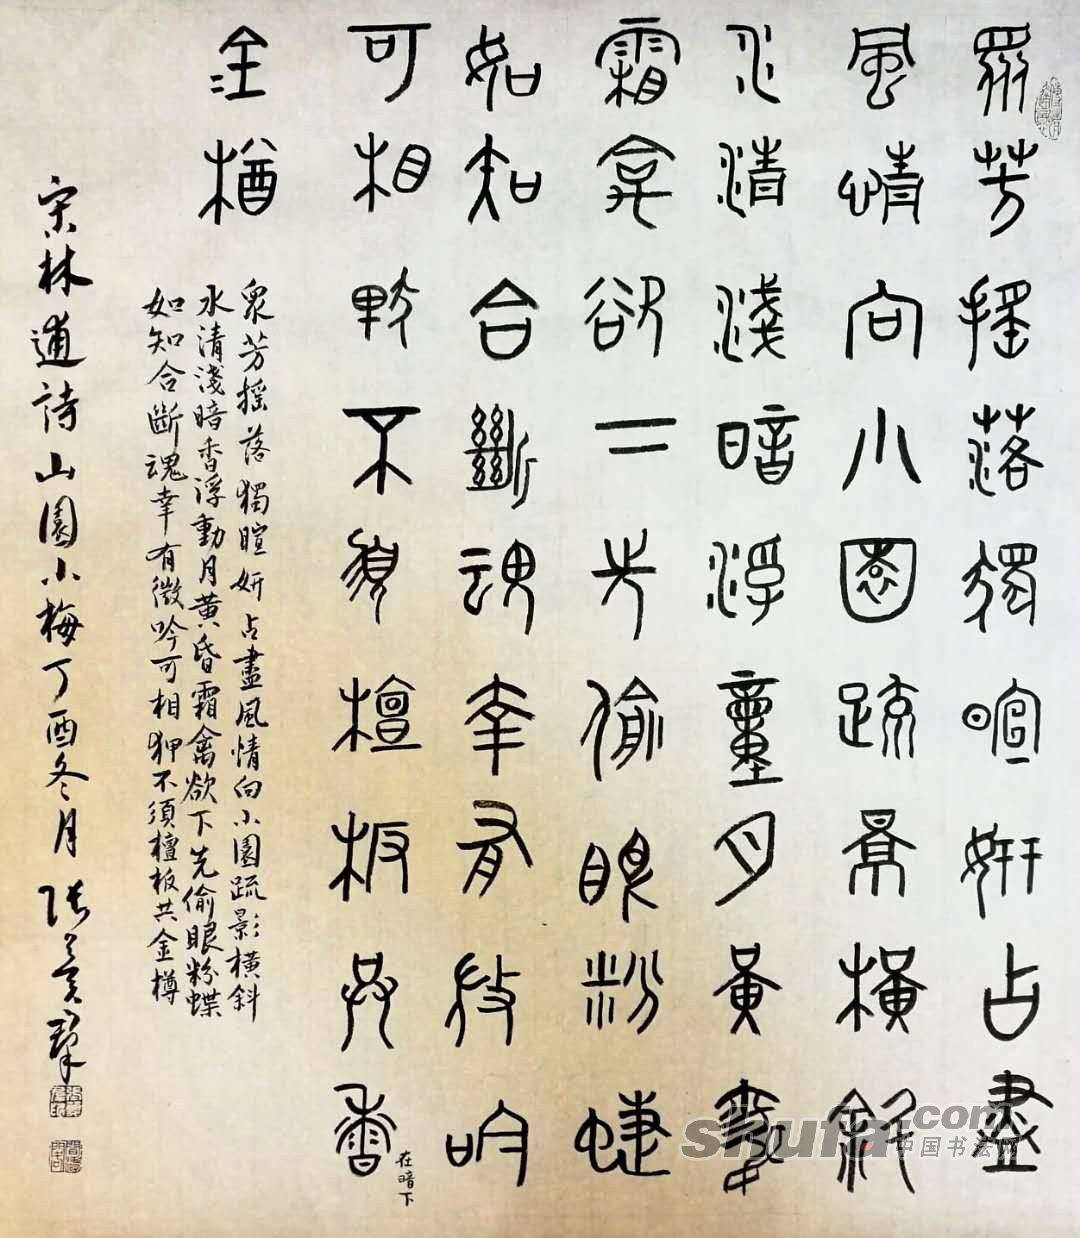 眾芳搖落獨暄妍占盡
風情向小園疏景橫斜
水清淺暗浮童月黃昏
霜禽欲下先偷眼粉蝶
如知合斷魂幸有微吟
可相狎不須檀板共香
在暗下
金樽
眾芳搖落獨暄妍占盡風情向小園疏影橫斜
水清淺暗香浮動月黃昏霜禽欲下先偷眼粉蝶
如知合斷魂幸有微吟可相狎不須檀板共金樽
宋林逋詩山園小梅丁酉冬月張
shufa.com
中国书法网